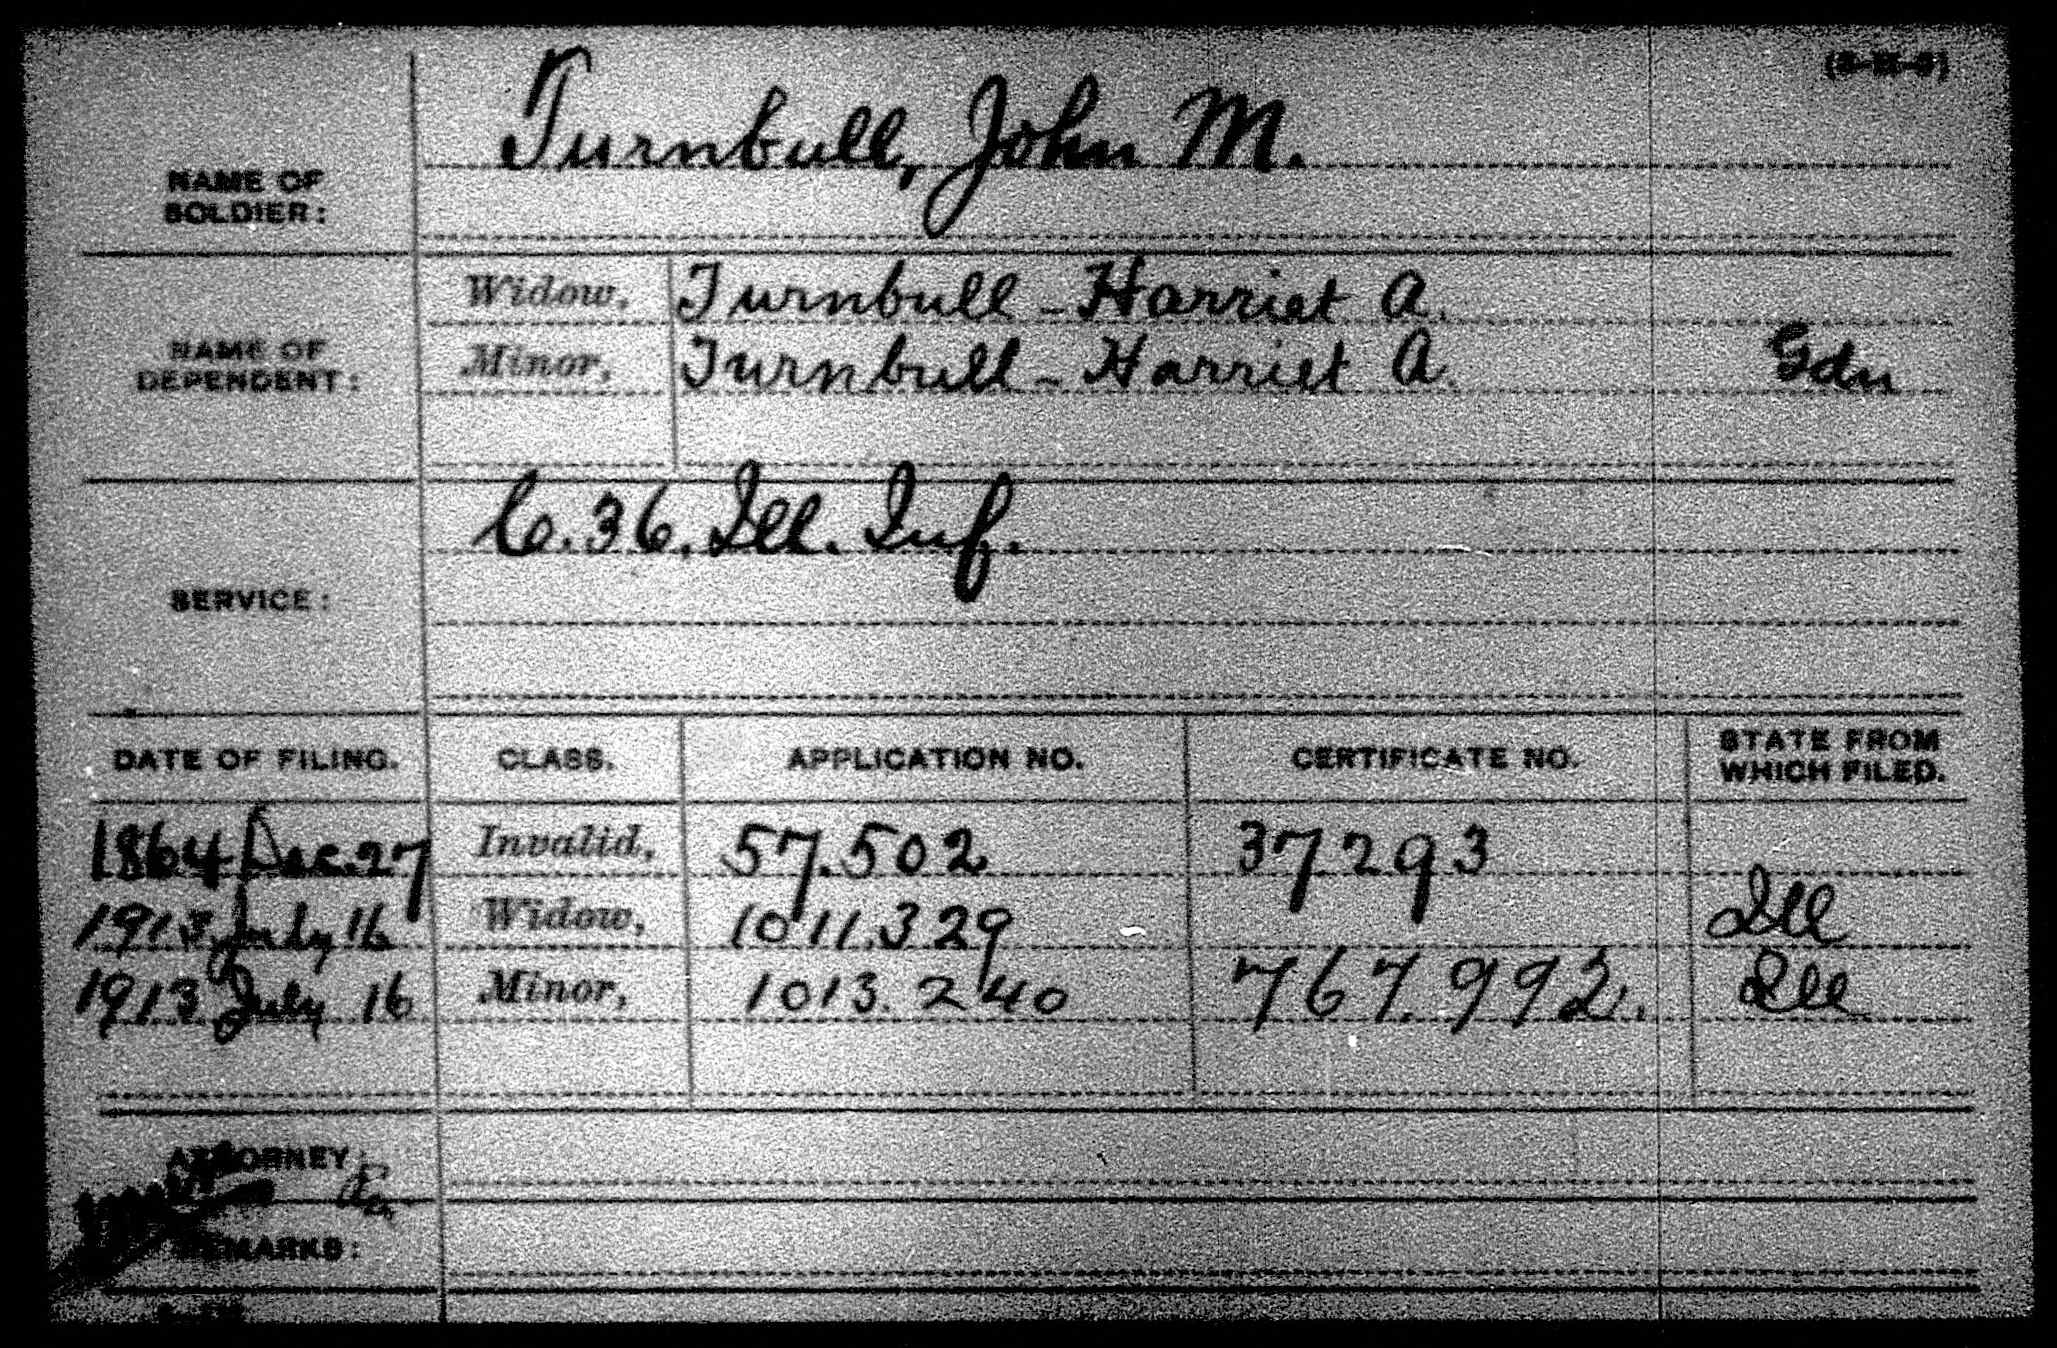 Turnbull, John M.
NAME OF
SOLDIER:
Widow, Turnbull - Harriet A.
NAME OF
DEPENDENT:
Minor, Turnbull - Harriet A. Gdn
SERVICE:
C. 36. Ill. Inf.
DATE OF FILING. CLASS. APPLICATION NO. CERTIFICATE NO. STATE FROM
WHICH FILED.
1864 Dec. 27 Invalid, 57.502 37.293
1913 July 16 Widow, 1011.329 Ill
1913 July 16 Minor, 1013.240 767.992. Ill
ATTORNEY:
REMARKS: